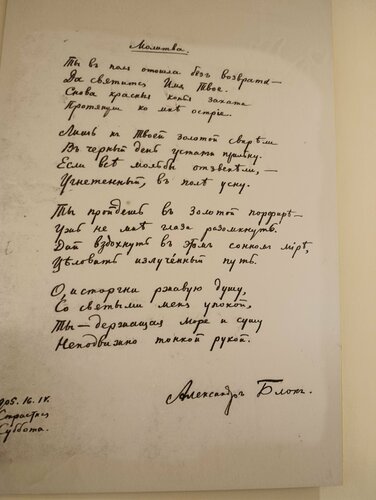 Молитва.
Ты въ поля отошла безъ возврата —
Да святится Имя Твое.
Снова красныя копья заката
Протянули ко мнѣ острiе.
Лишь къ Твоей золотой свирѣли
Въ черный день устами прильну.
Если всѣ мольбы отзвенѣли, —
Угнетенный, въ полѣ усну.
Ты пройдешь въ золотой порфирѣ —
Ужъ не мнѣ глаза разомкнуть.
Дай вздохнуть въ этомъ сонномъ мiрѣ,
Цѣловать излучённый путь.
О, исторгни ржавую душу,
Со святыми меня упокой,
Ты — держащая море и сушу
Неподвижно тонкой рукой.
Александръ Блокъ.
905. 16. IV.
Страстная
Суббота.